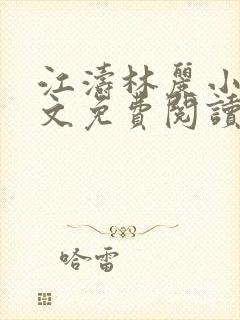 江濤林麗小
文免費閱讀
哈雷